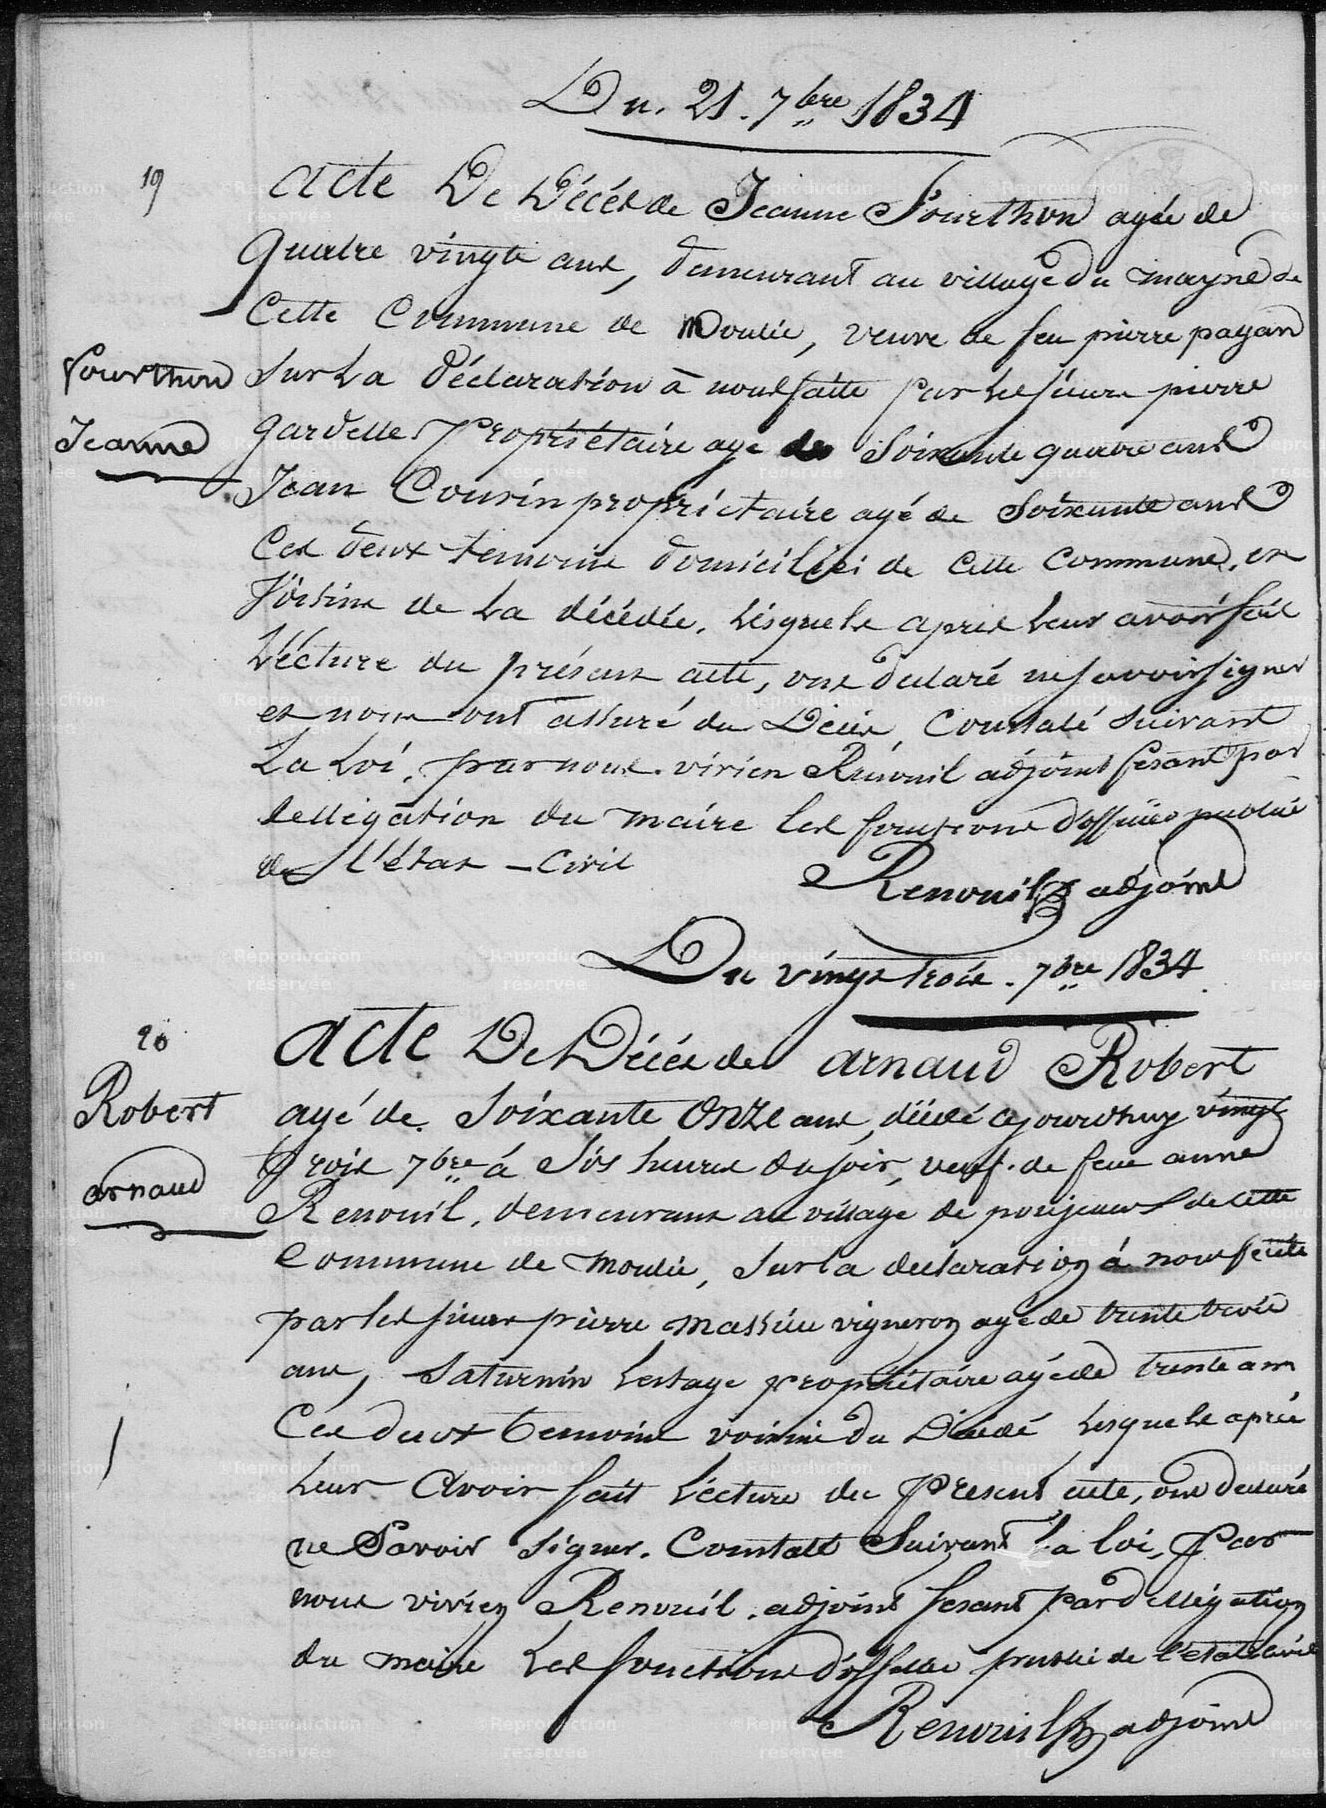 Du. 21. 7bre 1834
19
acte De Décés de Jeanne Fourthon agée de
quatre vingts ans, demeurant au village du mayne de
Cette Commune de Moulié, veuve de feu pierre payan
Fourthon
Sur La déclaration à nous faitte par Les sieurs pierre
Jeanne
gardelle propriétaire age de soixante quatre ans
Jean Cousin propriétaire agé de soixante ans
Ces deux temoins domiciliés de Cette Commune, et
voisins de La décédée, Lésquels aprés Leur avoir fait
Lécture du présent acte, ont déclaré ne savoir signer
et nous ont assuré du Décés, Constaté suivant
La Loi, par nous. vivien Renouil adjoint fesant par
dellégation du maire Les fonctions d'officier public
de L'état - Civil
Renouil adjoint
Du vingt trois. 7bre 1834
20
acte De Décés de arnaud Robert
Robert
agé de. Soixante Onze ans, décédé cejourdhuy vingt
trois 7bre à Sis heures du soir, veuf. de feue anne
arnaud
Renouil, demeurant au village de poujeaux de cette
Commune de Moulié, Sur La declaration à nous faite
par Les sieurs pierre Massieu vigneron agé de trente trois
ans, Saturnin Lestage propriétaire agé de trente ans
Ces deux temoins voisins du Décédé Lesquels aprés
Leur Avoir fait Lécture du présent acte, ont déclaré
ne Savoir signer. Constaté Suivant La loi, par
nous vivien Renouil. adjoint fesant par dellégation
du maire Les fonctions d'officier public de l'état civil
Renouil adjoint
©Reproduction réservée